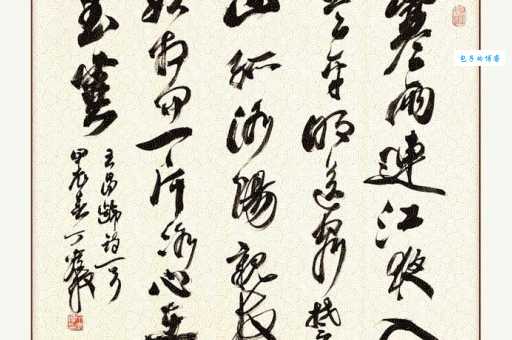 寒雨連江夜入
吳平明送客楚
山孤洛陽親友
如相問一片冰心在
玉壺
王昌齡詩一首
甲午春丁